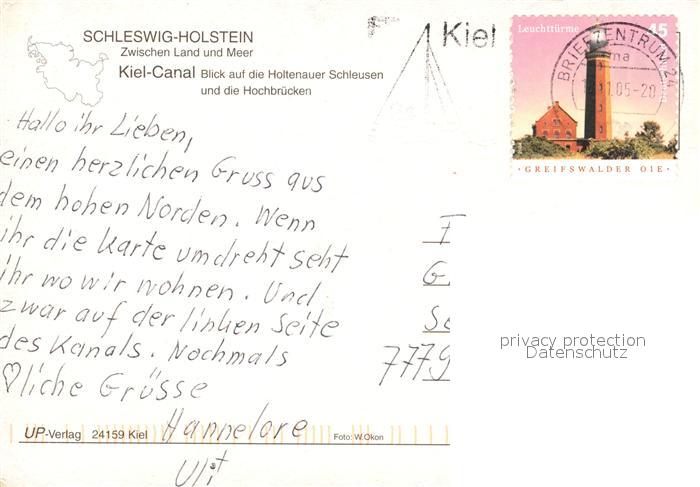 SCHLESWIG-HOLSTEIN
Zwischen Land und Meer
Kiel-Canal Blick auf die Holtenauer Schleusen
und die Hochbrücken
Kiel
Leuchttürme 45
BRIEFZENTRUM 24
05-20
GREIFSWALDER OIE
Hallo ihr Lieben,
einen herzlichen Gruss aus
dem hohen Norden. Wenn
ihr die Karte umdreht seht
ihr wo wir wohnen. Und
zwar auf der linken Seite
des Kanals. Nochmals
♡liche Grüsse
Hannelore
G.
7779
privacy protection
Datenschutz
UP-Verlag 24159 Kiel
Foto: W.Okon